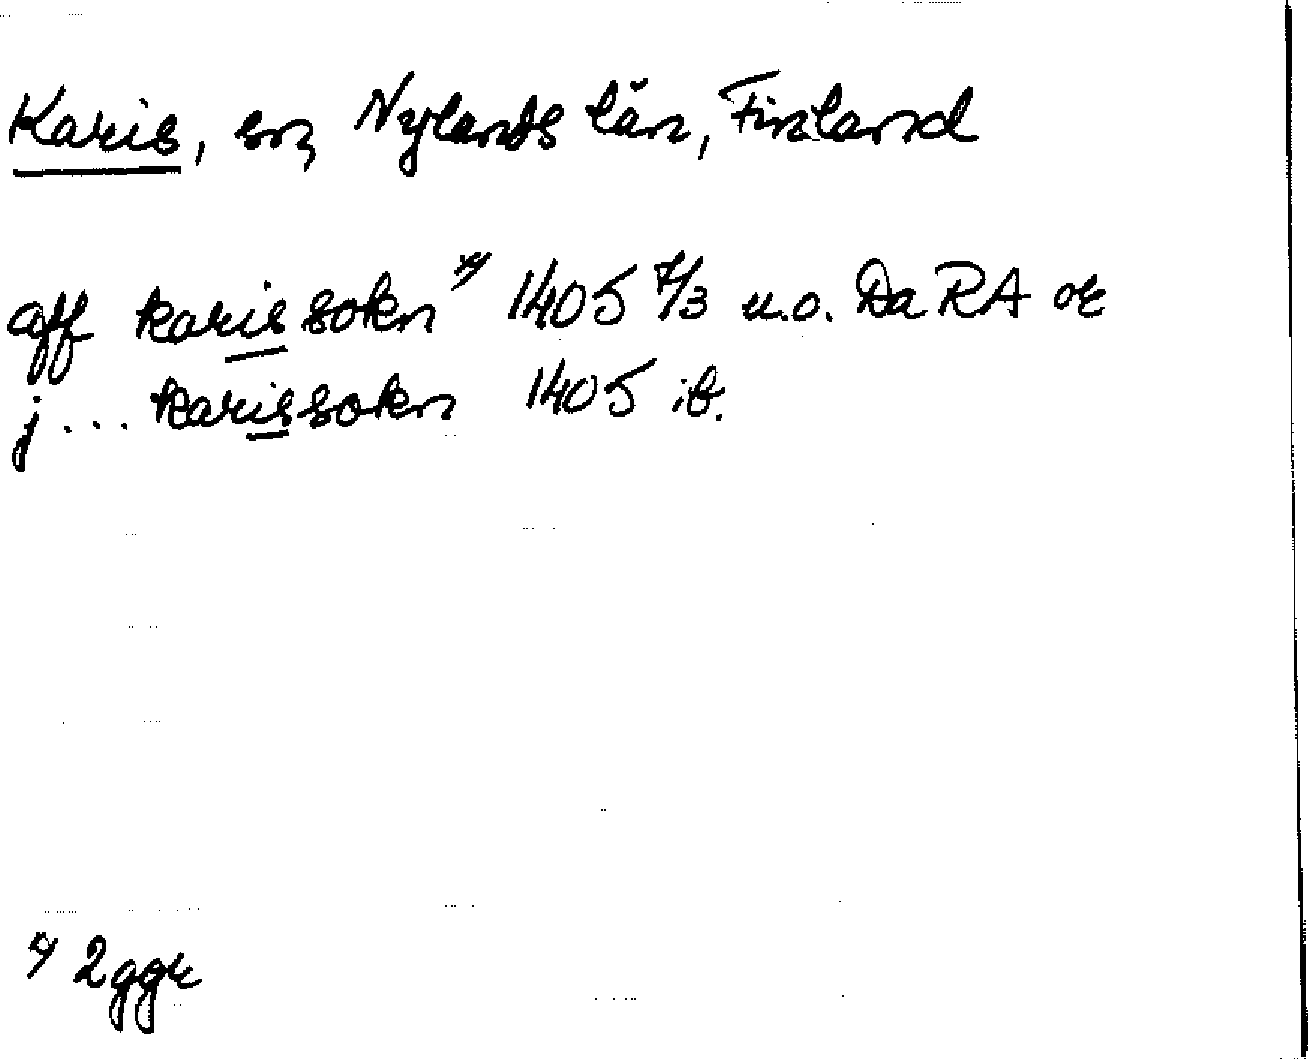 Karis, sn, Nylands län, Finland
aff karissokn x) 1405 7/3 u.o. DaRA or
j ... karissokn 1405 ib.
x) 2 ggr